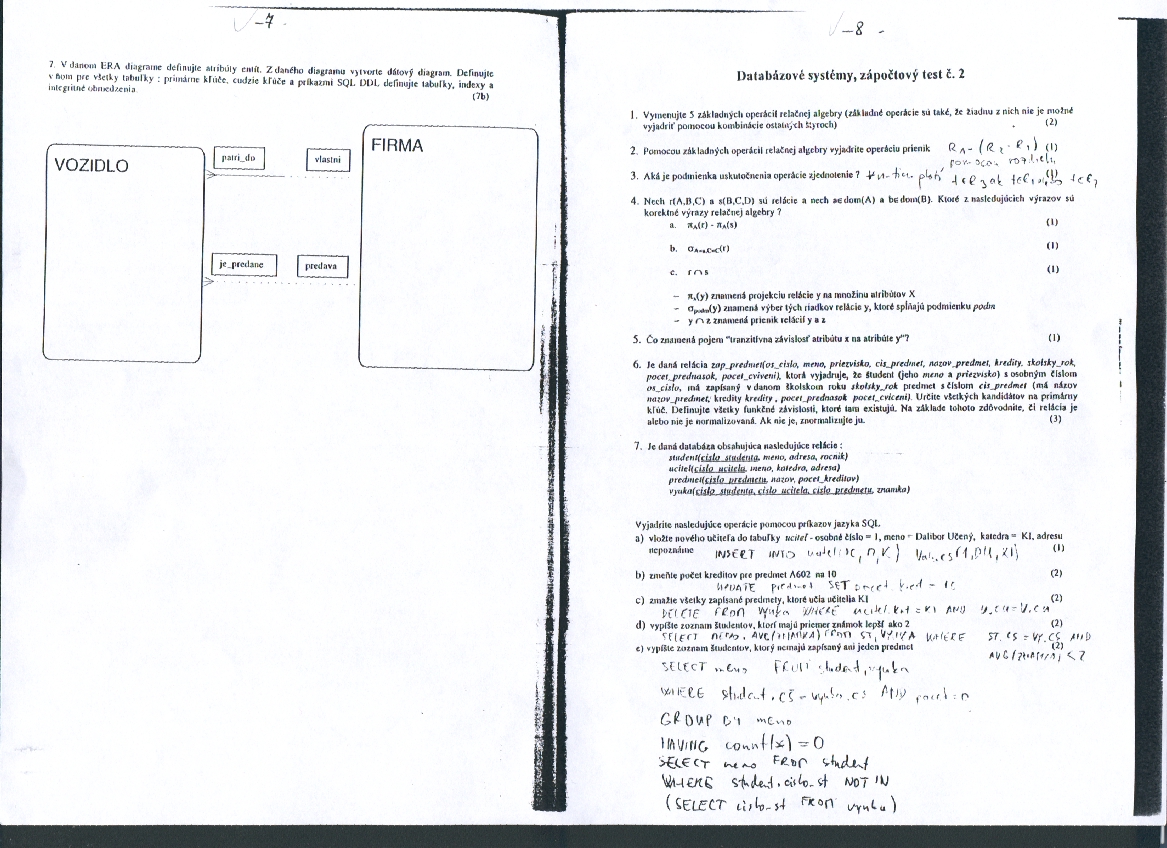 -7
7. V danom ERA diagrame definujte atribúty entít. Z daného diagramu vytvorte dátový diagram. Definujte
v ňom pre všetky tabuľky : primárne kľúče, cudzie kľúče a príkazmi SQL DDL definujte tabuľky, indexy a
integritné obmedzenia.
(7b)
VOZIDLO
patri_do
vlastni
FIRMA
je_predane
predava
-8 -
Databázové systémy, zápočtový test č. 2
1. Vymenujte 5 základných operácií relačnej algebry (základné operácie sú také, že žiadnu z nich nie je možné
vyjadriť pomocou kombinácie ostatných štyroch) (2)
2. Pomocou základných operácií relačnej algebry vyjadrite operáciu prienik (1)
3. Aká je podmienka uskutočnenia operácie zjednotenie ? (1)
4. Nech r(A,B,C) a s(B,C,D) sú relácie a nech a∈dom(A) a b∈dom(B). Ktoré z nasledujúcich výrazov sú
korektné výrazy relačnej algebry ?
a. π_A(r) - π_A(s) (1)
b. σ_A=a,C=C(r) (1)
c. r∩s (1)
– π_x(y) znamená projekciu relácie y na množinu atribútov X
– σ_podm(y) znamená výber tých riadkov relácie y, ktoré spĺňajú podmienku podm
– y ∩ z znamená prienik relácií y a z
5. Čo znamená pojem "tranzitívna závislosť atribútu x na atribúte y"? (1)
6. Je daná relácia zap_predmet(os_cislo, meno, priezvisko, cis_predmet, nazov_predmet, kredity, skolsky_rok,
pocet_prednasok, pocet_cviceni), ktorá vyjadruje, že študent (jeho meno a priezvisko) s osobným číslom
os_cislo, má zapísaný v danom školskom roku skolsky_rok predmet s číslom cis_predmet (má názov
nazov_predmet, kredity kredity , pocet_prednasok pocet_cviceni). Určite všetkých kandidátov na primárny
kľúč. Definujte všetky funkčné závislosti, ktoré tam existujú. Na základe tohoto zdôvodnite, či relácia je
alebo nie je normalizovaná. Ak nie je, znormalizujte ju. (3)
7. Je daná databáza obsahujúca nasledujúce relácie :
student(cislo_studenta, meno, adresa, rocnik)
ucitel(cislo_ucitela, meno, katedra, adresa)
predmet(cislo_predmetu, nazov, pocet_kreditov)
vyuka(cislo_studenta, cislo_ucitela, cislo_predmetu, znamka)
Vyjadrite nasledujúce operácie pomocou príkazov jazyka SQL
a) vložte nového učiteľa do tabuľky ucitel - osobné číslo = 1, meno = Dalibor Učený, katedra = KI, adresu
nepoznáme INSERT INTO (1)
b) zmeňte počet kreditov pre predmet A602 na 10 (2)
UPDATE SET
c) zmažte všetky zapísané predmety, ktoré učia učitelia KI (2)
DELETE FROM vyuka WHERE ucitel.kat = KI AND
d) vypíšte zoznam študentov, ktorí majú priemer známok lepší ako 2 (2)
SELECT MENO, AVG(ZNAMKA) FROM ST, VYUKA WHERE ST.CS = VY.CS AND
e) vypíšte zoznam študentov, ktorý nemajú zapísaný ani jeden predmet (2)
AVG(ZNAMKA) < 2
SELECT meno FROM student, vyuka
WHERE student.cš = vyuka.cs AND
GROUP BY meno
HAVING count(x) = 0
SELECT meno FROM student
WHERE student.cislo_st NOT IN
(SELECT cislo_st FROM vyuka)